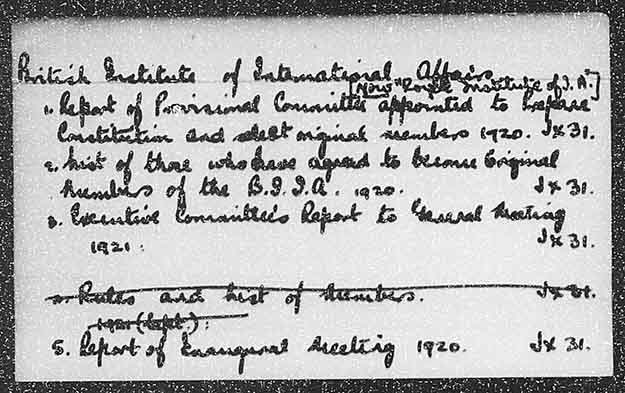 British Institute of International Affairs
[Now "Royal Institute of I.A."]
1. Report of Provisional Committee appointed to prepare
Constitution and select original members 1920. Jx 31.
2. List of those who have agreed to become Original
Members of the B.I.I.A. 1920. Jx 31.
3. Executive Committee's Report to General Meeting
1921. Jx 31.
Rules and List of Members. Jx 31.
1921 (Sept.).
5. Report of Inaugural Meeting 1920. Jx 31.